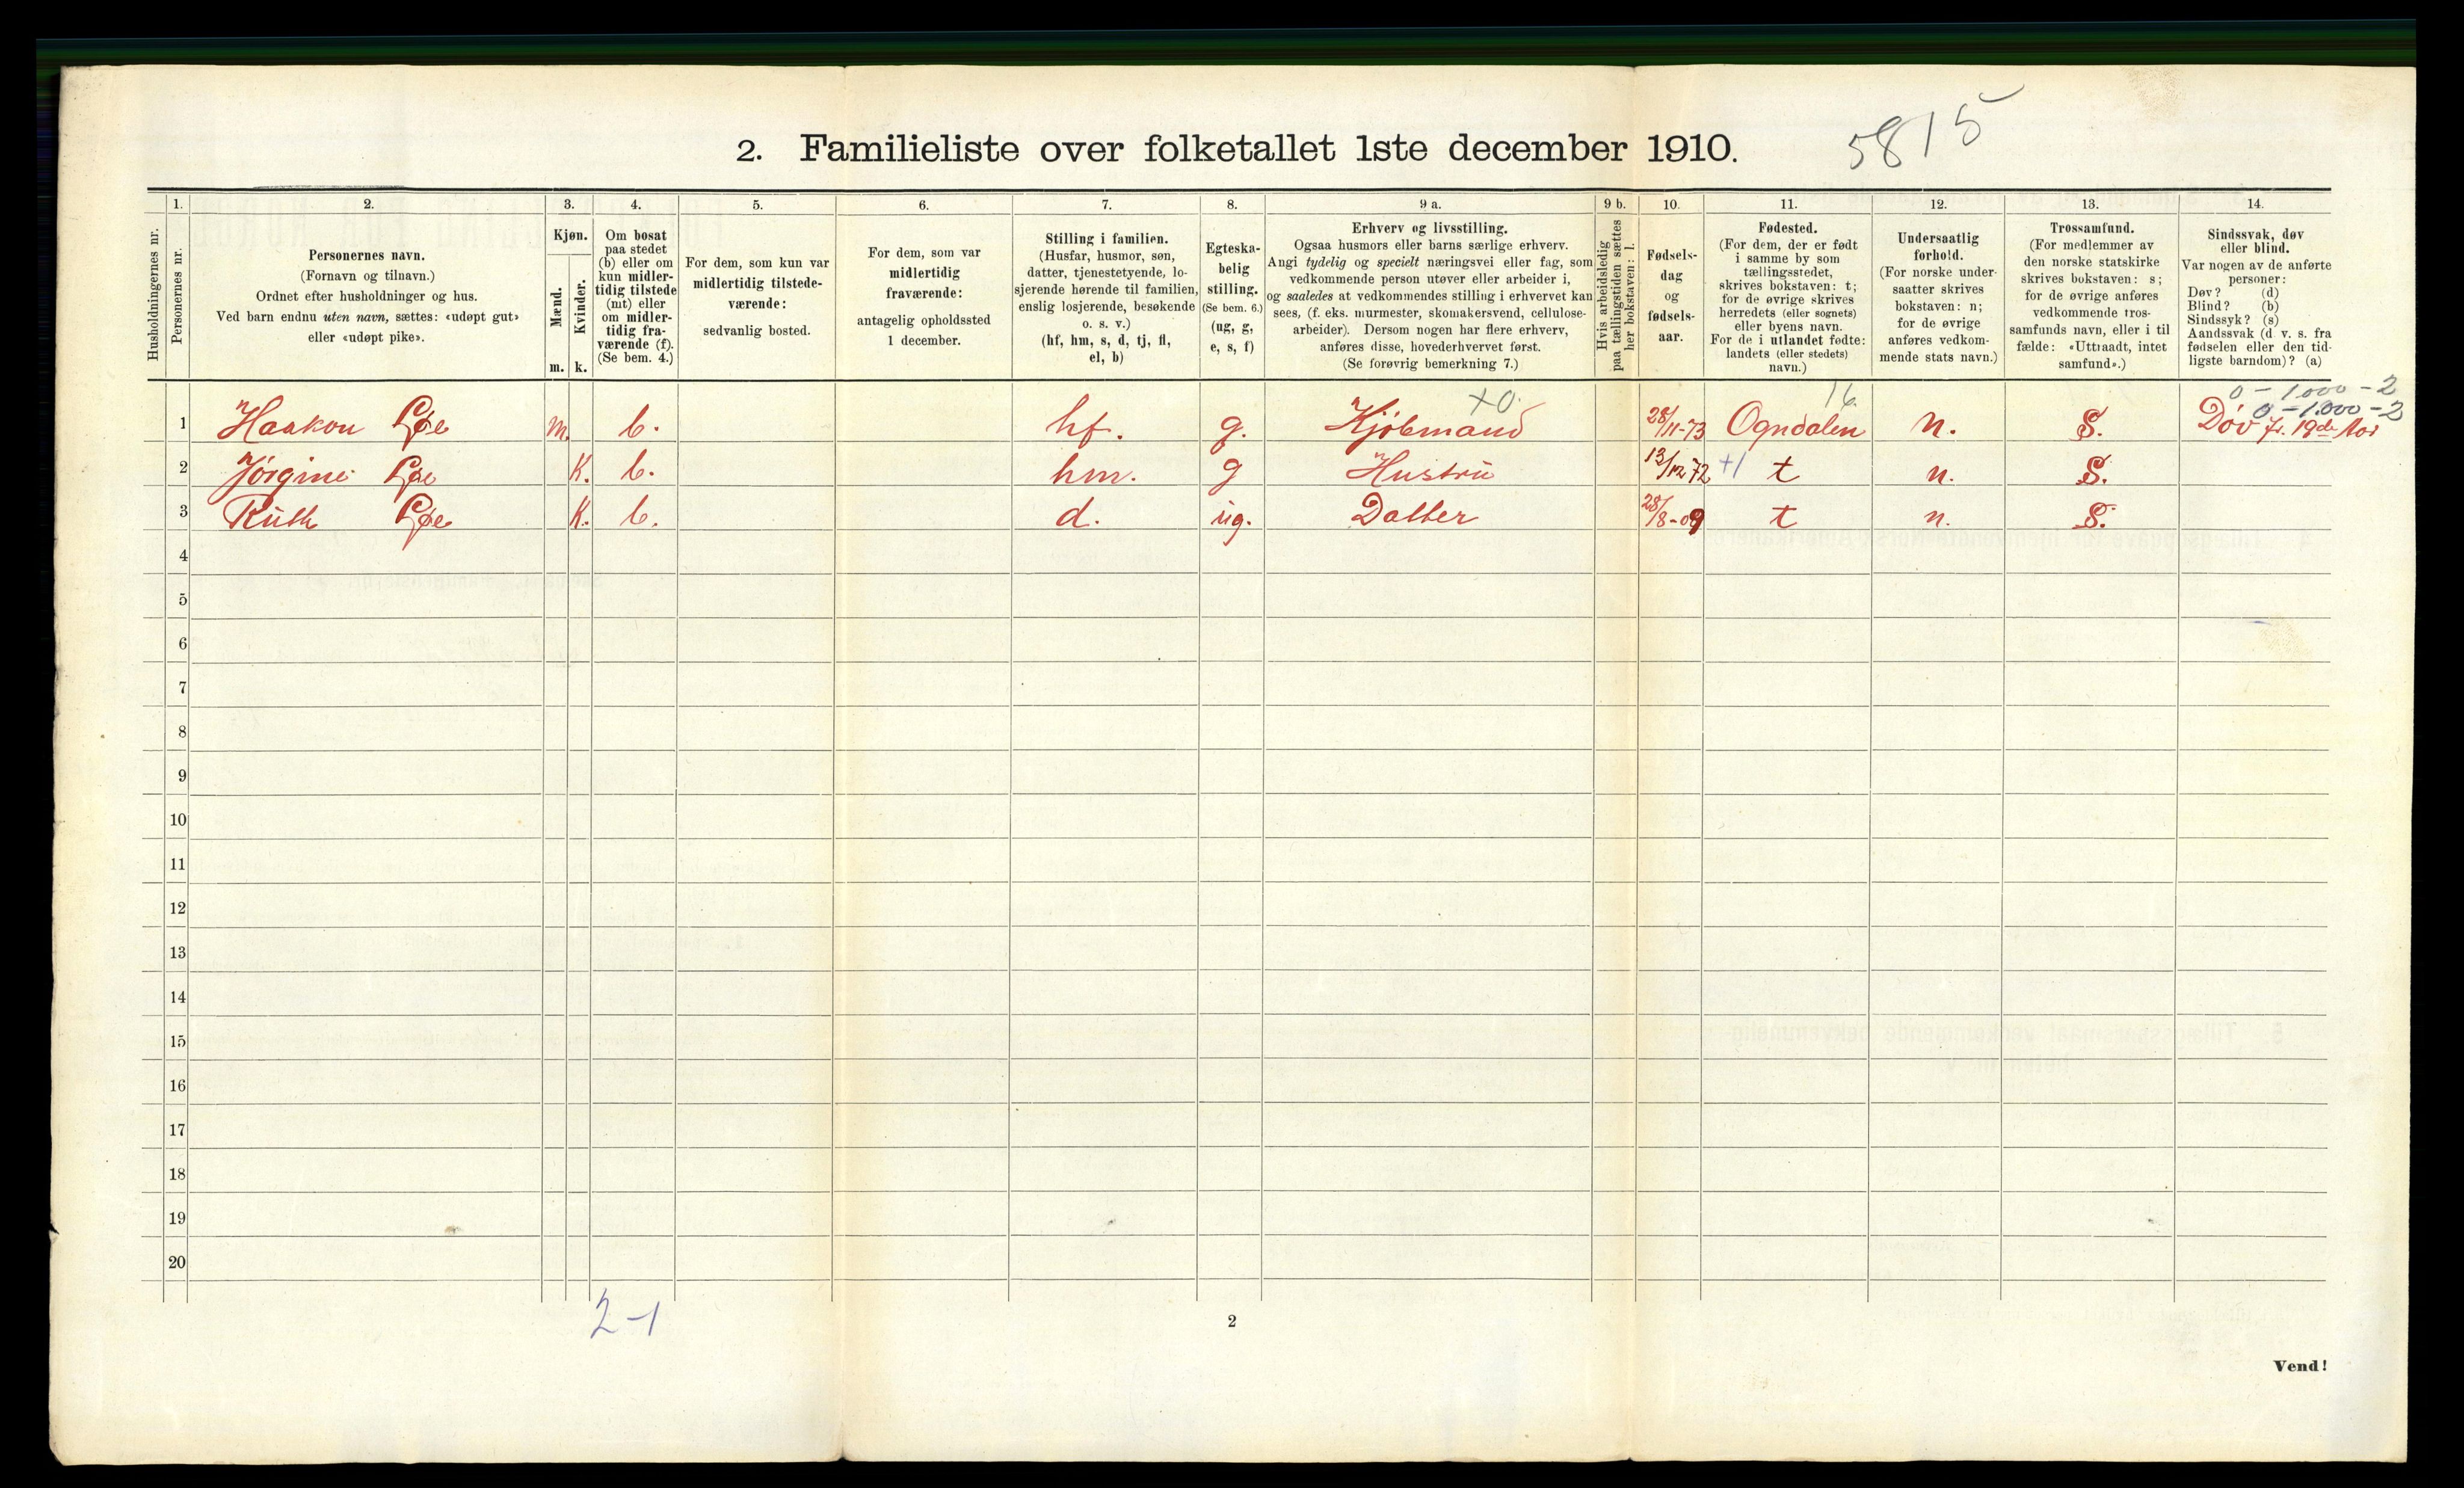 2. Familieliste over folketallet 1ste december 1910.
5815
Husholdningernes nr.
1.
Personernes nr.
2.
Personernes navn.
(Fornavn og tilnavn.)
Ordnet efter husholdninger og hus.
Ved barn endnu uten navn, sættes: «udøpt gut»
eller «udøpt pike».
3.
Kjøn.
Mænd.
Kvinder.
m.
k.
4.
Om bosat
paa stedet
(b) eller om
kun midler-
tidig tilstede
(mt) eller
om midler-
tidig fra-
værende (f).
(Se bem. 4.)
5.
For dem, som kun var
midlertidig tilstede-
værende:
sedvanlig bosted.
6.
For dem, som var
midlertidig
fraværende:
antagelig opholdssted
1 december.
7.
Stilling i familien.
(Husfar, husmor, søn,
datter, tjenestetyende, lo-
sjerende hørende til familien,
enslig losjerende, besøkende
o. s. v.)
(hf, hm, s, d, tj, fl,
el, b)
8.
Egteska-
belig
stilling.
(Se bem. 6.)
(ug, g,
e, s, f)
9 a.
Erhverv og livsstilling.
Ogsaa husmors eller barns særlige erhverv.
Angi tydelig og specielt næringsvei eller fag, som
vedkommende person utøver eller arbeider i,
og saaledes at vedkommendes stilling i erhvervet kan
sees, (f. eks. murmester, skomakersvend, cellulose-
arbeider). Dersom nogen har flere erhverv,
anføres disse, hovederhvervet først.
(Se forøvrig bemerkning 7.)
9 b.
Hvis arbeidsledig
paa tællingstiden sættes
her bokstaven: l.
10.
Fødsels-
dag
og
fødsels-
aar.
11.
Fødested.
(For dem, der er født
i samme by som
tællingsstedet,
skrives bokstaven: t;
for de øvrige skrives
herredets (eller sognets)
eller byens navn.
For de i utlandet fødte:
landets (eller stedets)
navn.)
12.
Undersaatlig
forhold.
(For norske under-
saatter skrives
bokstaven: n;
for de øvrige
anføres vedkom-
mende stats navn.)
13.
Trossamfund.
(For medlemmer av
den norske statskirke
skrives bokstaven: s;
for de øvrige anføres
vedkommende tros-
samfunds navn, eller i til
fælde: «Uttraadt, intet
samfund».)
14.
Sindssvak, døv
eller blind.
Var nogen av de anførte
personer:
Døv? (d)
Blind? (b)
Sindssyk? (s)
Aandssvak (d. v. s. fra
fødselen eller den tid-
ligste barndom)? (a)
+0. 16 0 - 1.000 - 2
0 - 1.000 - 2
1 Haakon Gøe m. b. hf. g. Kjøbmand 28/11-73 Ogndalen n. S. Døv fr. 19de
2 Jørgine Gøe K. b. hm. g Hustru 13/12 72 +1 t n. S.
3 Ruth Gøe K. b. d. ug. Datter 28/8-09 t n. S.
4
5
6
7
8
9
10
11
12
13
14
15
16
17
18
19
20
2-1
2
Vend!